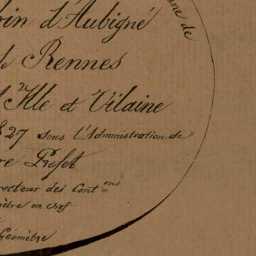 d'Aubigné
Rennes
Ille et Vilaine
827 sous l'Administration de
Préfet
recteur des Contons
mètre en chef
Géomètre